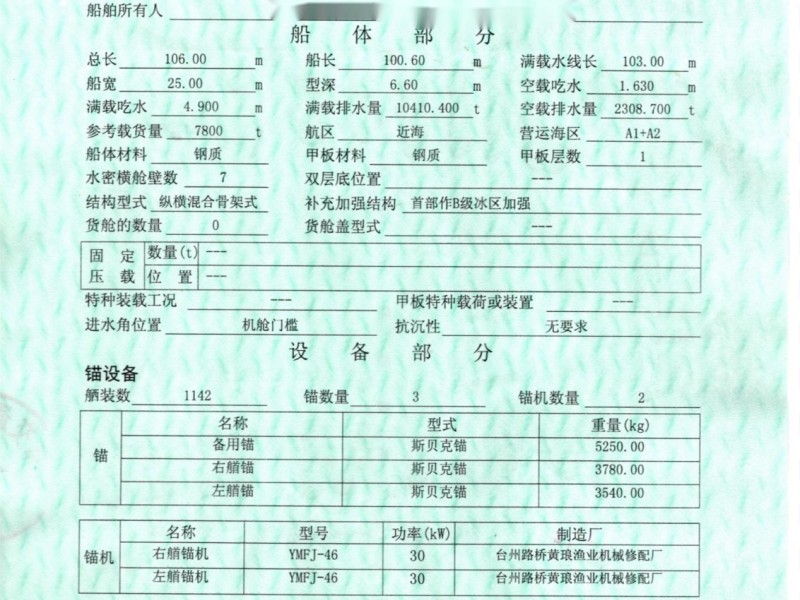 船舶所有人
船 体 部 分
总长 106.00 m 船长 100.60 m 满载水线长 103.00 m
船宽 25.00 m 型深 6.60 m 空载吃水 1.630 m
满载吃水 4.900 m 满载排水量 10410.400 t 空载排水量 2308.700 t
参考载货量 7800 t 航区 近海 营运海区 A1+A2
船体材料 钢质 甲板材料 钢质 甲板层数 1
水密横舱壁数 7 双层底位置 ---
结构型式 纵横混合骨架式 补充加强结构 首部作B级冰区加强
货舱的数量 0 货舱盖型式 ---
固定压载 数量(t) ---
位置 ---
特种装载工况 --- 甲板特种载荷或装置 ---
进水角位置 机舱门槛 抗沉性 无要求
设 备 部 分
锚设备
舾装数 1142 锚数量 3 锚机数量 2
锚 名称 型式 重量(kg)
备用锚 斯贝克锚 5250.00
右艏锚 斯贝克锚 3780.00
左艏锚 斯贝克锚 3540.00
锚机 名称 型号 功率(kW) 制造厂
右艏锚机 YMFJ-46 30 台州路桥黄琅渔业机械修配厂
左艏锚机 YMFJ-46 30 台州路桥黄琅渔业机械修配厂